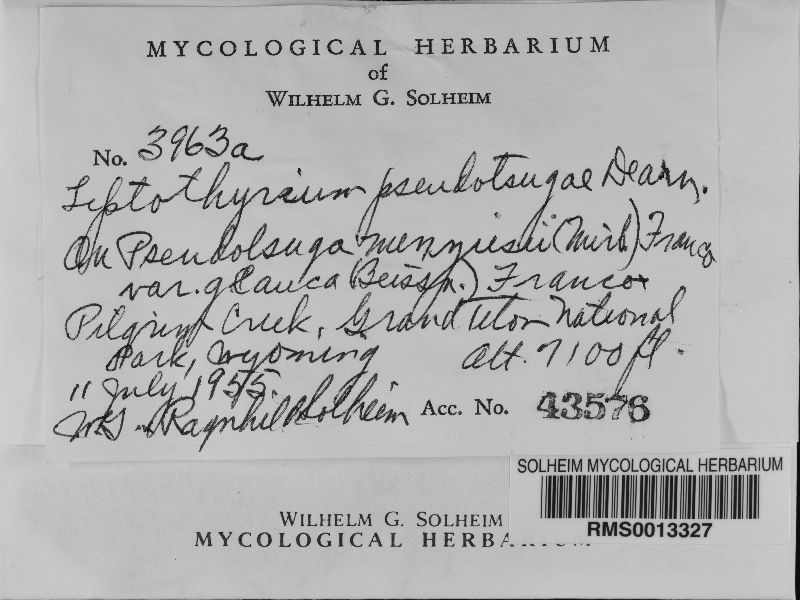 MYCOLOGICAL HERBARIUM
of
WILHELM G. SOLHEIM
No. 3963a
Leptothyrium pseudotsugae Dearn.
On Pseudotsuga menziesii (Mirb) Franco
var. glauca (Beissn.) Franco
Pilgrim Creek, Grand Teton National
Park, Wyoming Alt. 7100 ft.
11 July 1955.
WGS & Ragnhild Solheim Acc. No. 43576
SOLHEIM MYCOLOGICAL HERBARIUM
RMS0013327
WILHELM G. SOLHEIM
MYCOLOGICAL HERBARIUM